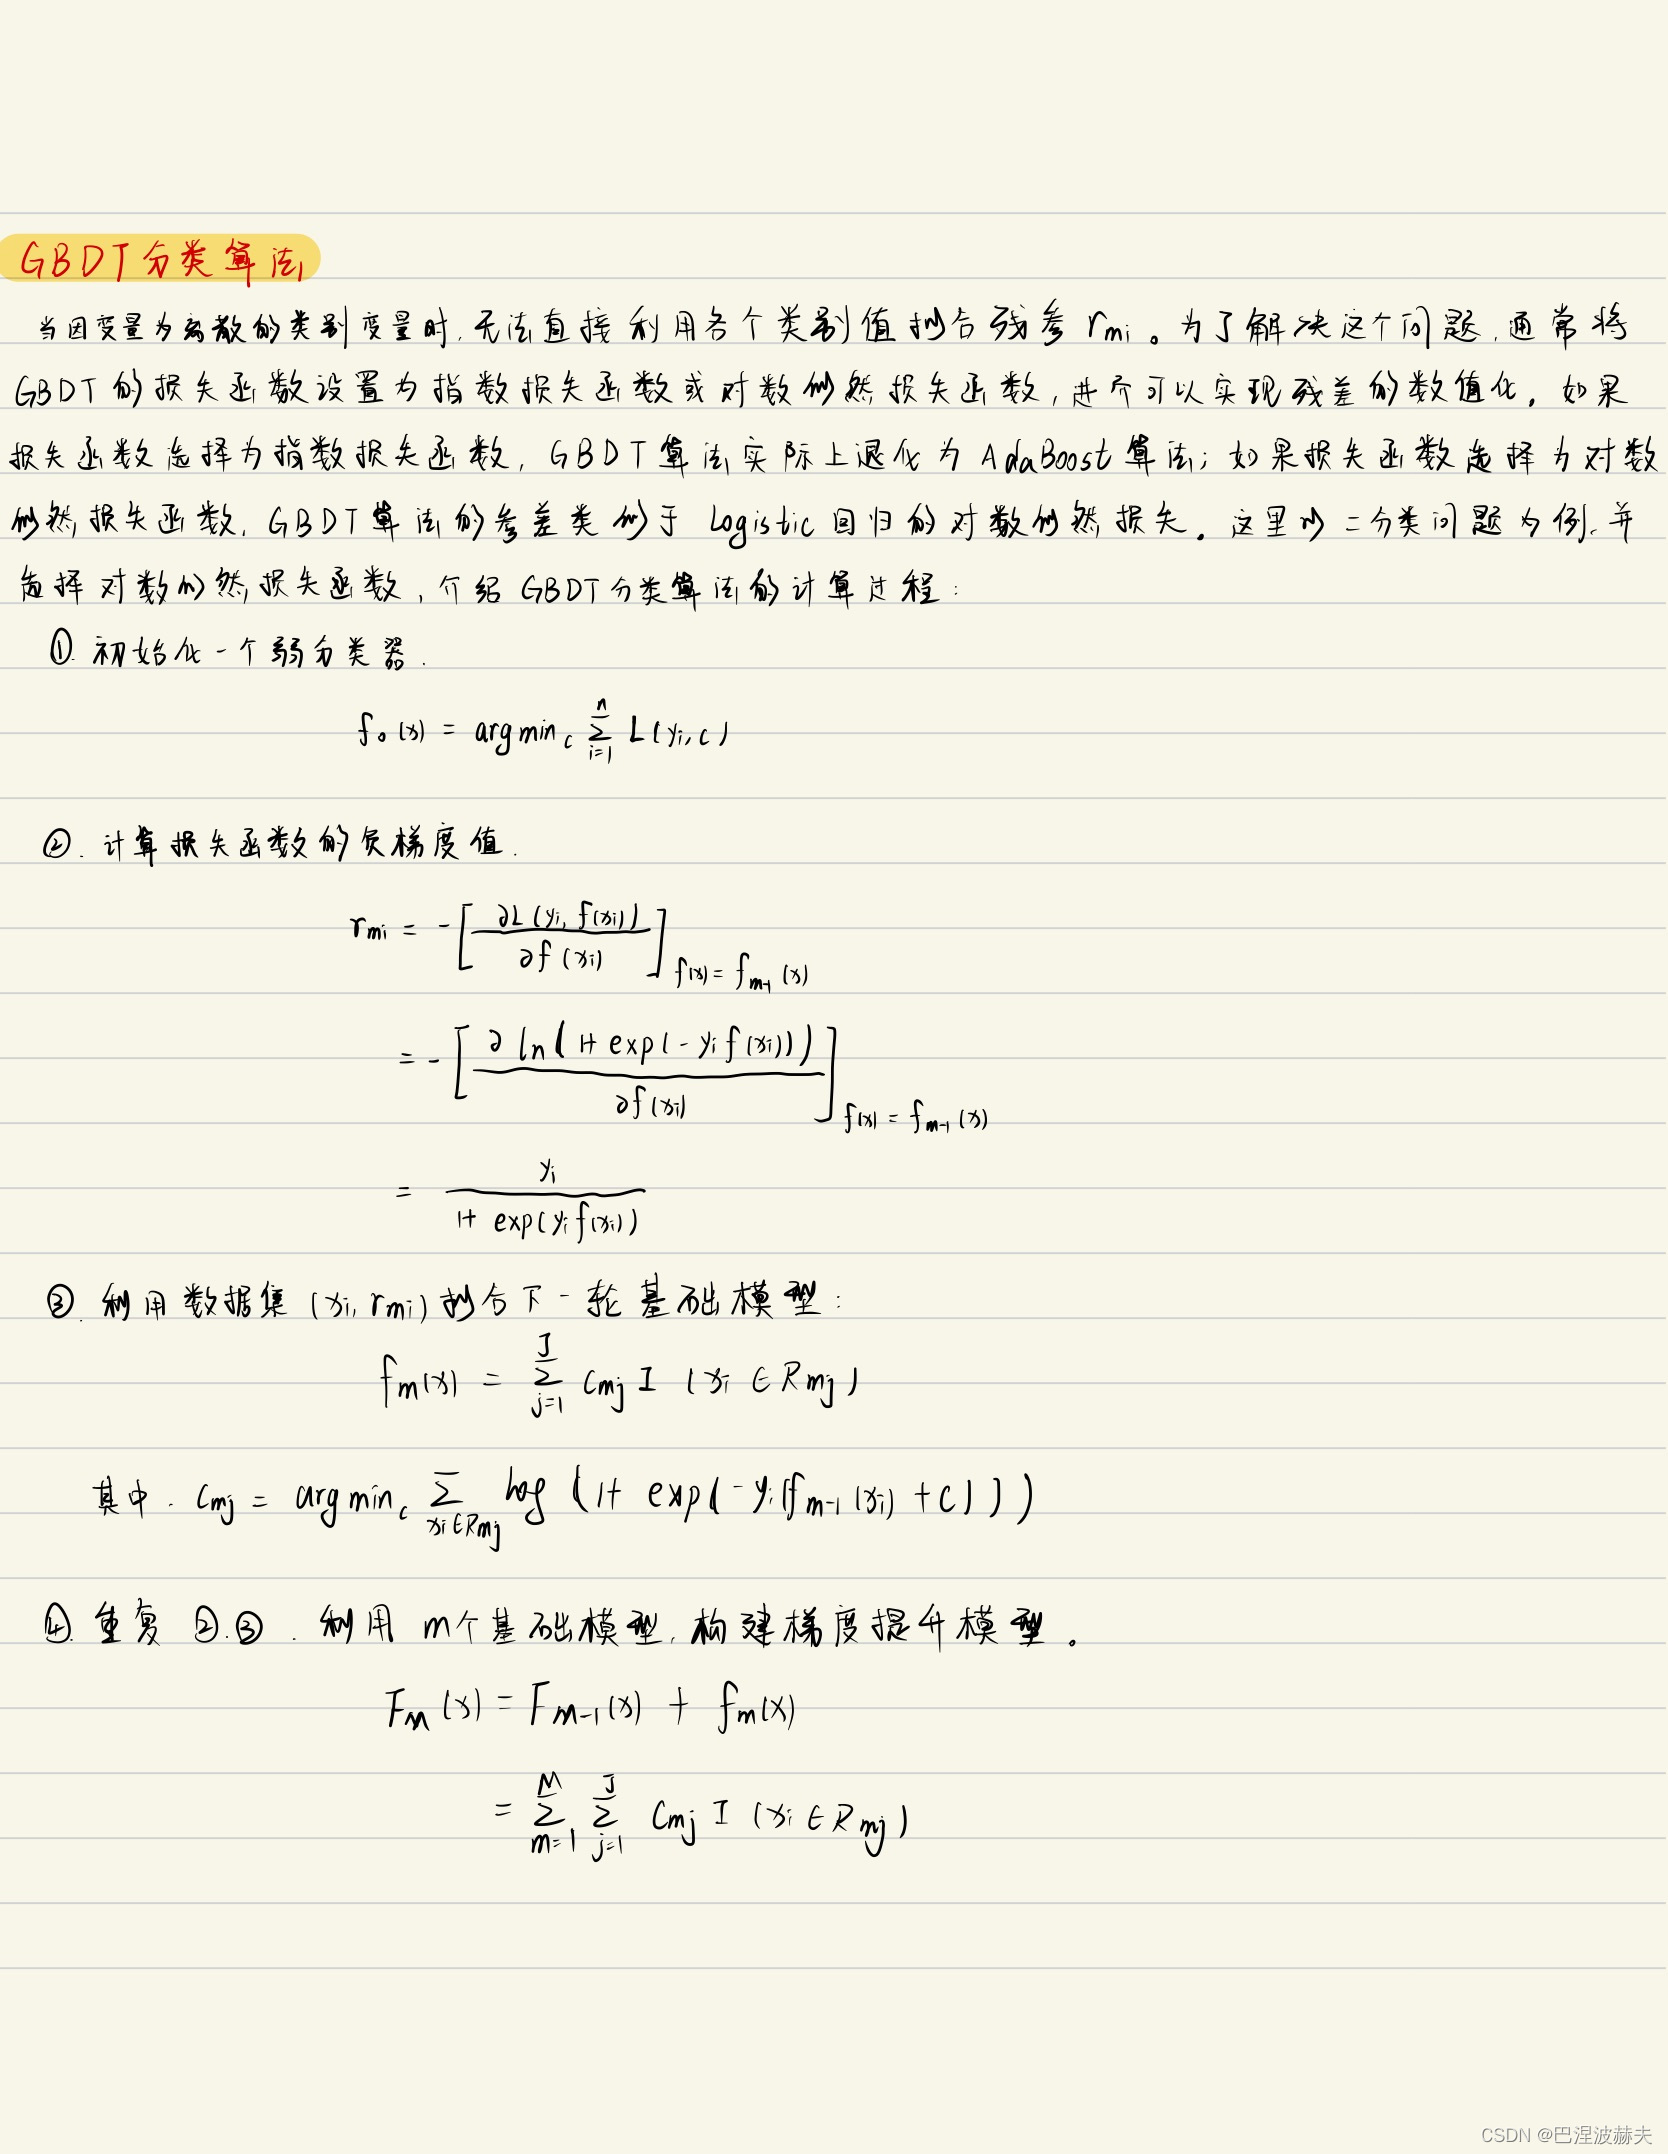 GBDT分类算法
当因变量为离散的类别变量时,无法直接利用各个类别值拟合残参 rmi。为了解决这个问题,通常将
GBDT的损失函数设置为指数损失函数或对数似然损失函数,进而可以实现残差的数值化。如果
损失函数选择为指数损失函数,GBDT算法实际上退化为AdaBoost算法;如果损失函数选择为对数
似然损失函数,GBDT算法的参差类似于Logistic回归的对数似然损失。这里以二分类问题为例,并
选择对数似然损失函数,介绍GBDT分类算法的计算过程:
①. 初始化一个弱分类器.
f₀(x) = argmin_c Σ_{i=1}^{n} L(yi, c)
②. 计算损失函数的负梯度值.
r_{mi} = -[∂L(yi, f(xi)) / ∂f(xi)]_{f(x)=f_{m-1}(x)}
= -[∂ln(1+exp(-yi f(xi))) / ∂f(xi)]_{f(x)=f_{m-1}(x)}
= yi / (1+exp(yi f(xi)))
③. 利用数据集(xi, rmi)拟合下一轮基础模型:
f_m(x) = Σ_{j=1}^{J} C_{mj} I (xi ∈ R_{mj})
其中. C_{mj} = argmin_c Σ_{xi∈R_{mj}} log(1+exp(-yi(f_{m-1}(xi)+c)))
④. 重复 ②.③. 利用m个基础模型,构建梯度提升模型。
F_m(x) = F_{m-1}(x) + f_m(x)
= Σ_{m=1}^{M} Σ_{j=1}^{J} C_{mj} I (xi ∈ R_{mj})
CSDN @巴涅波赫夫